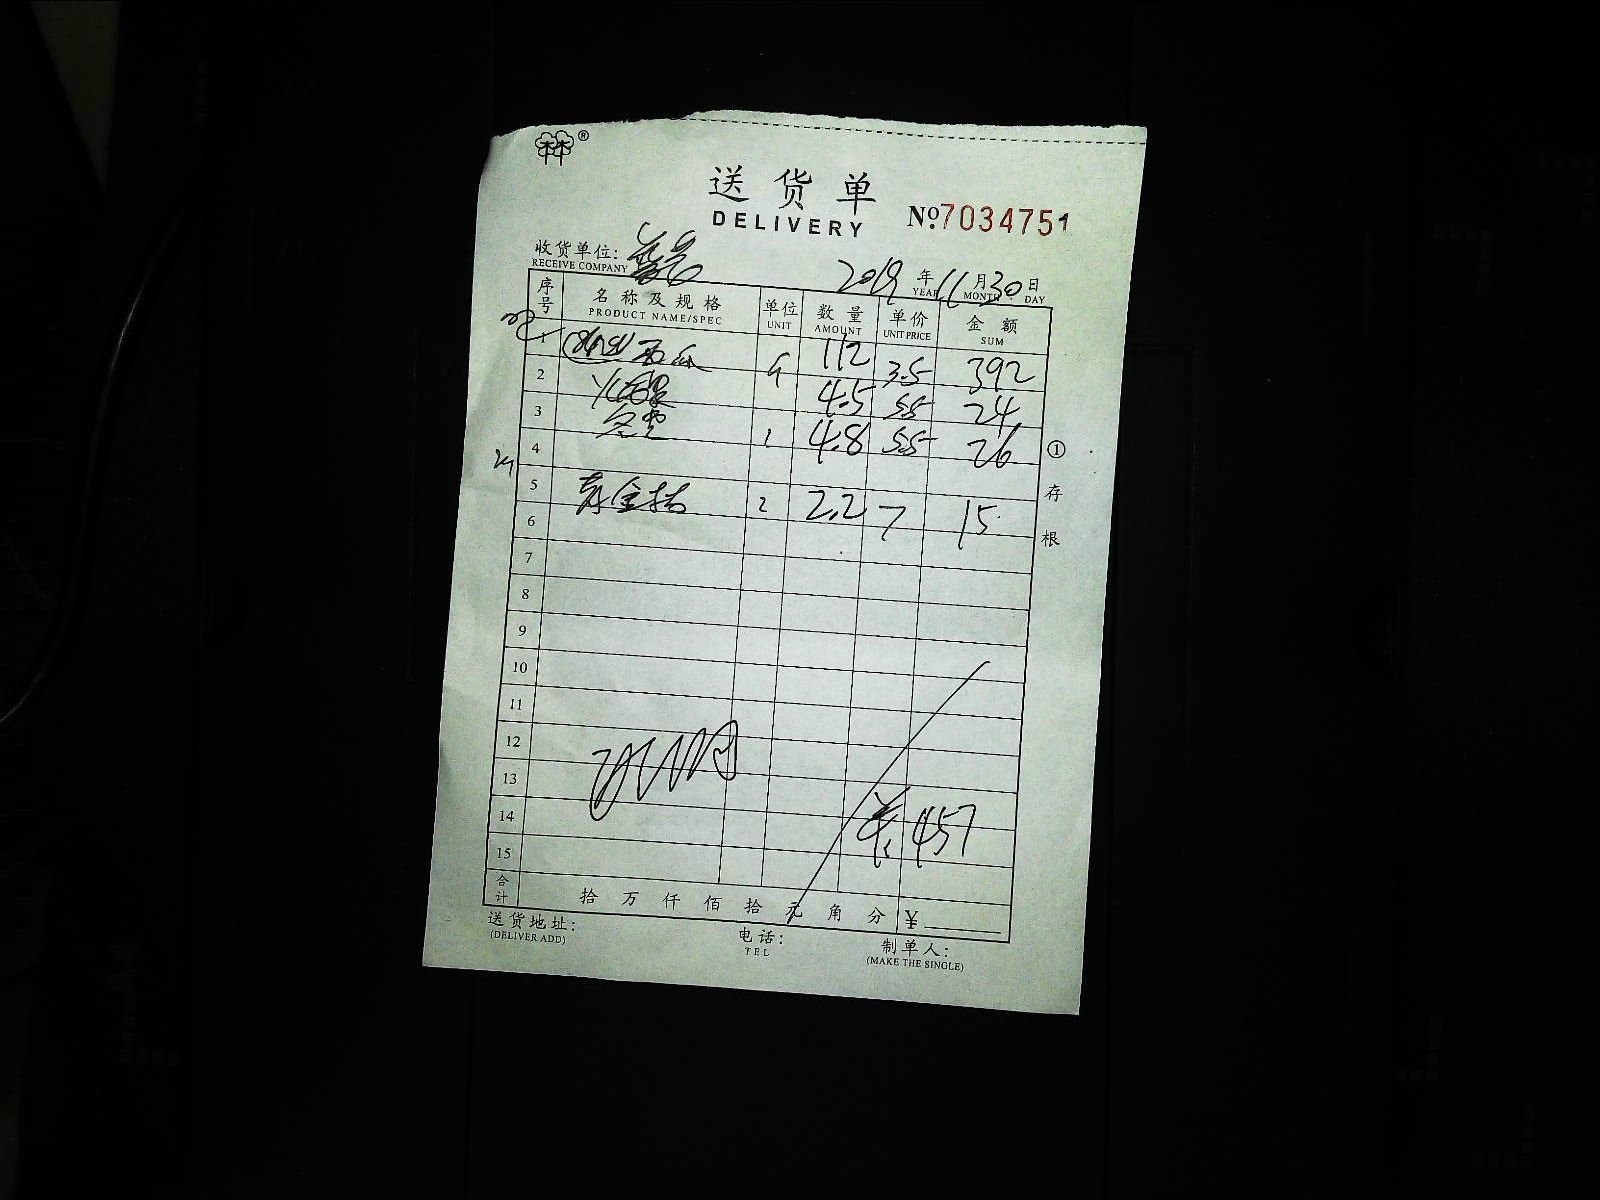 林®
送货单
DELIVERY
№7034751
收货单位:
RECEIVE COMPANY
2019年11月30日
YEAR MONTH DAY
序号 名称及规格 单位 数量 单价 金额
PRODUCT NAME/SPEC UNIT AMOUNT UNIT PRICE SUM
1 西瓜 112 3.5 392
2 火龙果 4.5 5.5 24
3 冬枣 1 4.8 5.5 26
4
5 2 2.2 7 15
6
7
8
9
10
11
12
13
14 457
15
合计 拾 万 仟 佰 拾 元 角 分 ¥
送货地址: 电话: 制单人:
(DELIVER ADD) TEL (MAKE THE SINGLE)
①存根